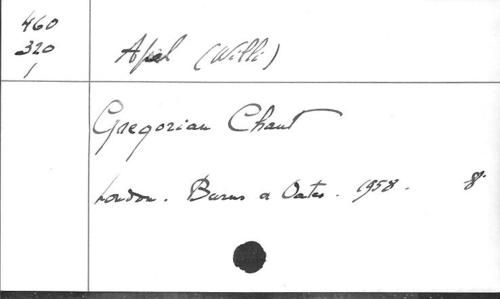 460
320
1
Apel (Willi)
Gregorian Chant
London. Burns & Oates. 1958. 8°